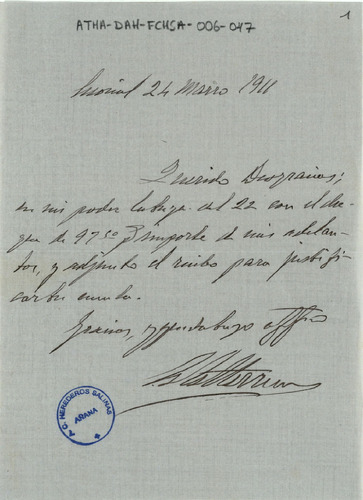 ATHA-DAH-FCHSA-006-047
1
24 Marzo 1911
Querido Deogracias;
en mi poder la tuya del 22 con el che-
que de 97'50 importe de mis adelan-
tos, y adjunto el recibo para justifi-
car tu cuenta.
Gracias, y
A. C. HEREDEROS SALINAS
AÑANA